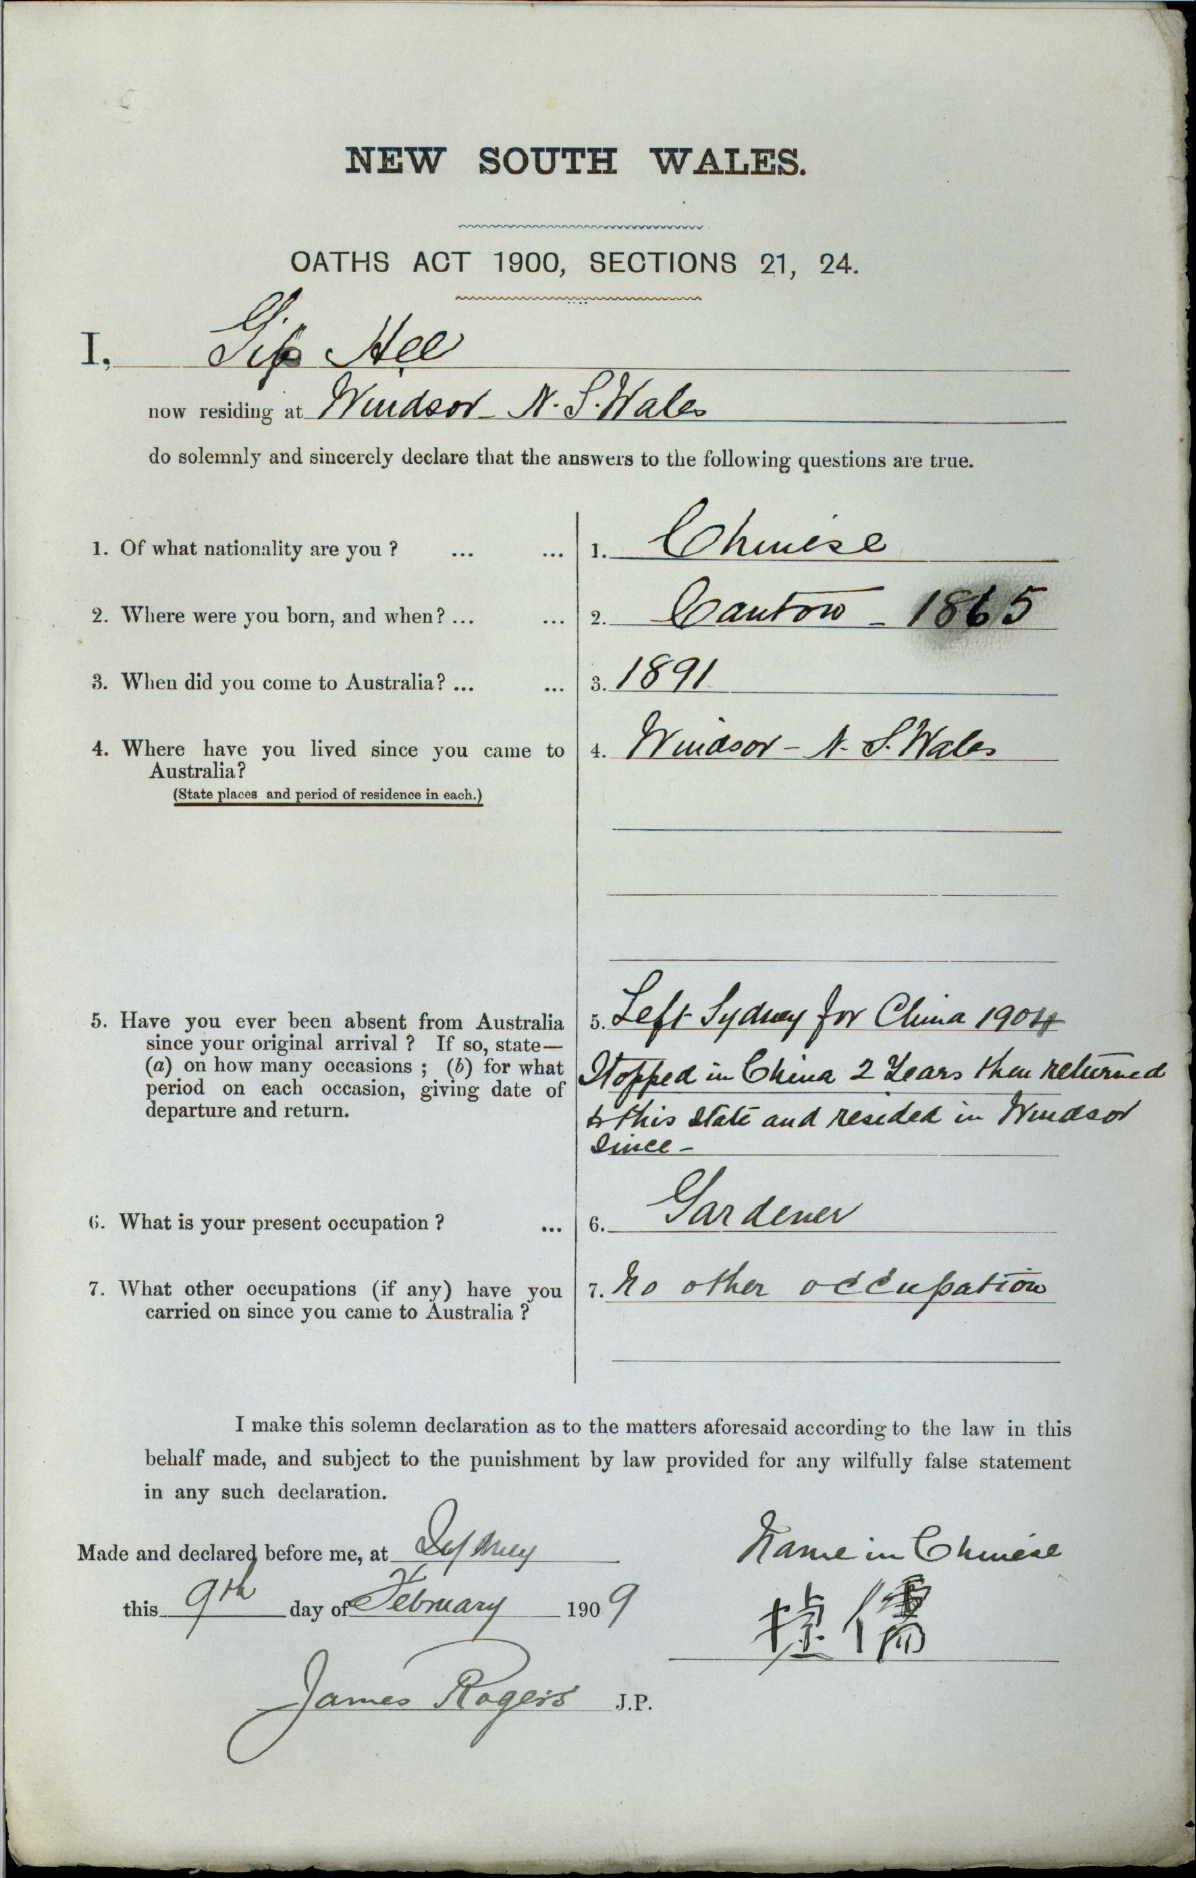 NEW SOUTH WALES.
OATHS ACT 1900, SECTIONS 21, 24.
I, Gip Hee
now residing at Windsor N. S. Wales
do solemnly and sincerely declare that the answers to the following questions are true.
1. Of what nationality are you ? ... ... 1. Chinese
2. Where were you born, and when? ... ... 2. Canton - 1865
3. When did you come to Australia? ... ... 3. 1891
4. Where have you lived since you came to 4. Windsor - N. S. Wales
Australia?
(State places and period of residence in each.)
5. Have you ever been absent from Australia 5. Left Sydney for China 1904
since your original arrival ? If so, state—
(a) on how many occasions ; (b) for what Stopped in China 2 Years then returned
period on each occasion, giving date of to this state and resided in Windsor
departure and return. since -
6. What is your present occupation ? ... 6. Gardener
7. What other occupations (if any) have you 7. No other occupation
carried on since you came to Australia ?
I make this solemn declaration as to the matters aforesaid according to the law in this
behalf made, and subject to the punishment by law provided for any wilfully false statement
in any such declaration.
Made and declared before me, at Sydney Name in Chinese
this 9th day of February 1909
儒
James Rogers J.P.